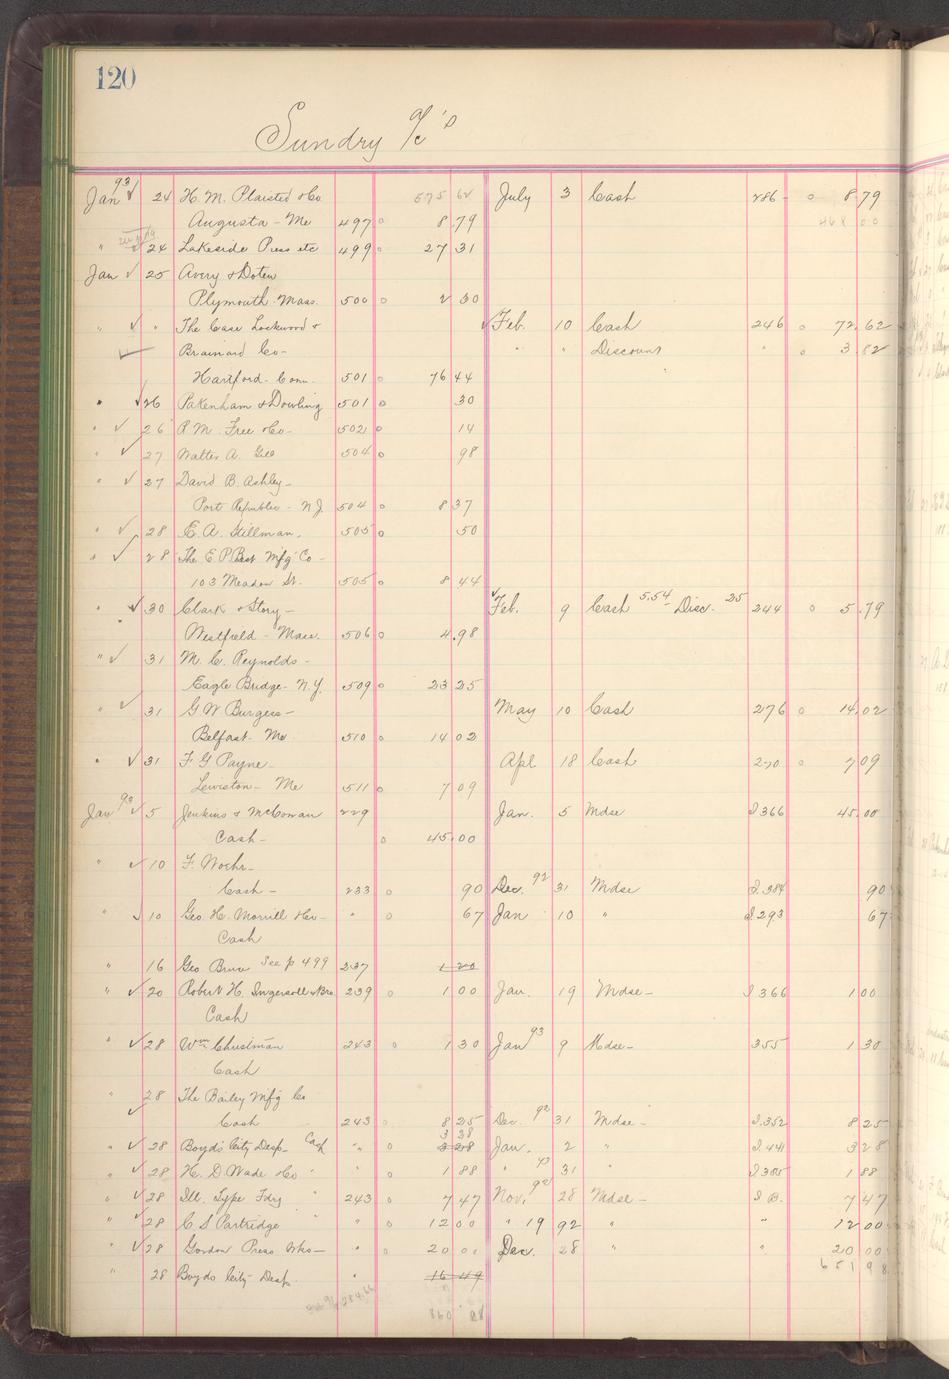 120
Sundry a/c's
Jan 93 24 H. M. Plaisted & Co 575 62 July 3 Cash 286 8.79
Augusta - Me 497 8.79 468 00
" 24 Lakeside Press etc 499 27 31
Jan 25 Avery & Doten
Plymouth Mass. 500 2 30
" " The Case Lockwood & Feb. 10 Cash 246 72.62
Brainard Co- " " Discount " 3.82
Hartford. Conn. 501 76 44
" 26 Pakenham & Dowling 501 30
" 26 R. M. Free & Co- 502 14
" 27 Walter A. Gill 504 98
" 27 David B. Ashley-
Port Republic - N J 504 8 37
" 28 E. A. Stillman. 505 50
" 28 The E P Best Mfg Co-
103 Meadow St. 505 8 44
" 30 Clark & Story- Feb. 9 Cash 5.54 Disc. 25 244 5.79
Westfield - Mass. 506 4.98
" 31 M. C. Reynolds-
Eagle Bridge- N.Y. 509 23 25
" 31 G W Burgess- May 10 Cash 276 14.02
Belfast. Me 510 14 02
" 31 F. G Payne- Apl 18 Cash 270 7 09
Lewiston- Me 511 7 09
Jan 93 5 Jenkins & McCowan 229 Jan. 5 Mdse I 366 45.00
Cash- 45.00
" 10 F. Wochr-
Cash- 233 90 Dec. 92 31 Mdse I. 384 90
" 10 Geo. H. Morrill & Co- " 67 Jan 10 " I 293 67
Cash
" 16 Geo Bruce See p 499 237 1 20
" 20 Robert H. Ingersoll & Bro 239 1 00 Jan. 19 Mdse- I 366 1 00
Cash
" 28 Wm. Chustman 243 1 30 Jan 93 9 Mdse- 355 1 30
Cash
" 28 The Bailey Mfg Co
Cash 243 8 25 Dec. 92 31 Mdse- I. 352 8 25
3 28
" 28 Boyd's City Desp- Cash " 3 28 Jan. 2 " I. 441 3 28
" 28 H. D. Wade & Co " " 1 88 " 93 31 " I 385 1 88
" 28 Ill. Type Fdry " 243 7 47 Nov. 92 28 Mdse- I B. 7 47
" 28 C. S Partridge " " 12 00 " 19 92 " " 12 00
" 28 Gordon Press Wks- " 20 00 Dec. 28 " " 20 00
651 98
" 28 Boyds City Desp. " 16 49
860 28